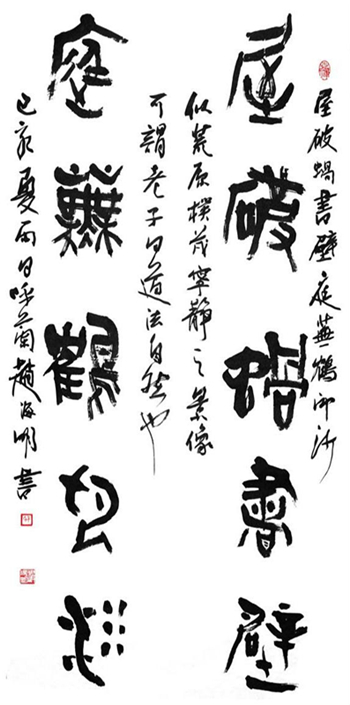 屋破蝸書壁庭蕪鶴印沙
屋破蝸書壁
似荒原樸茂寧靜之景像
可謂老子曰道法自然也
庭蕪鶴印沙
己亥夏雨日呼蘭趙海明書